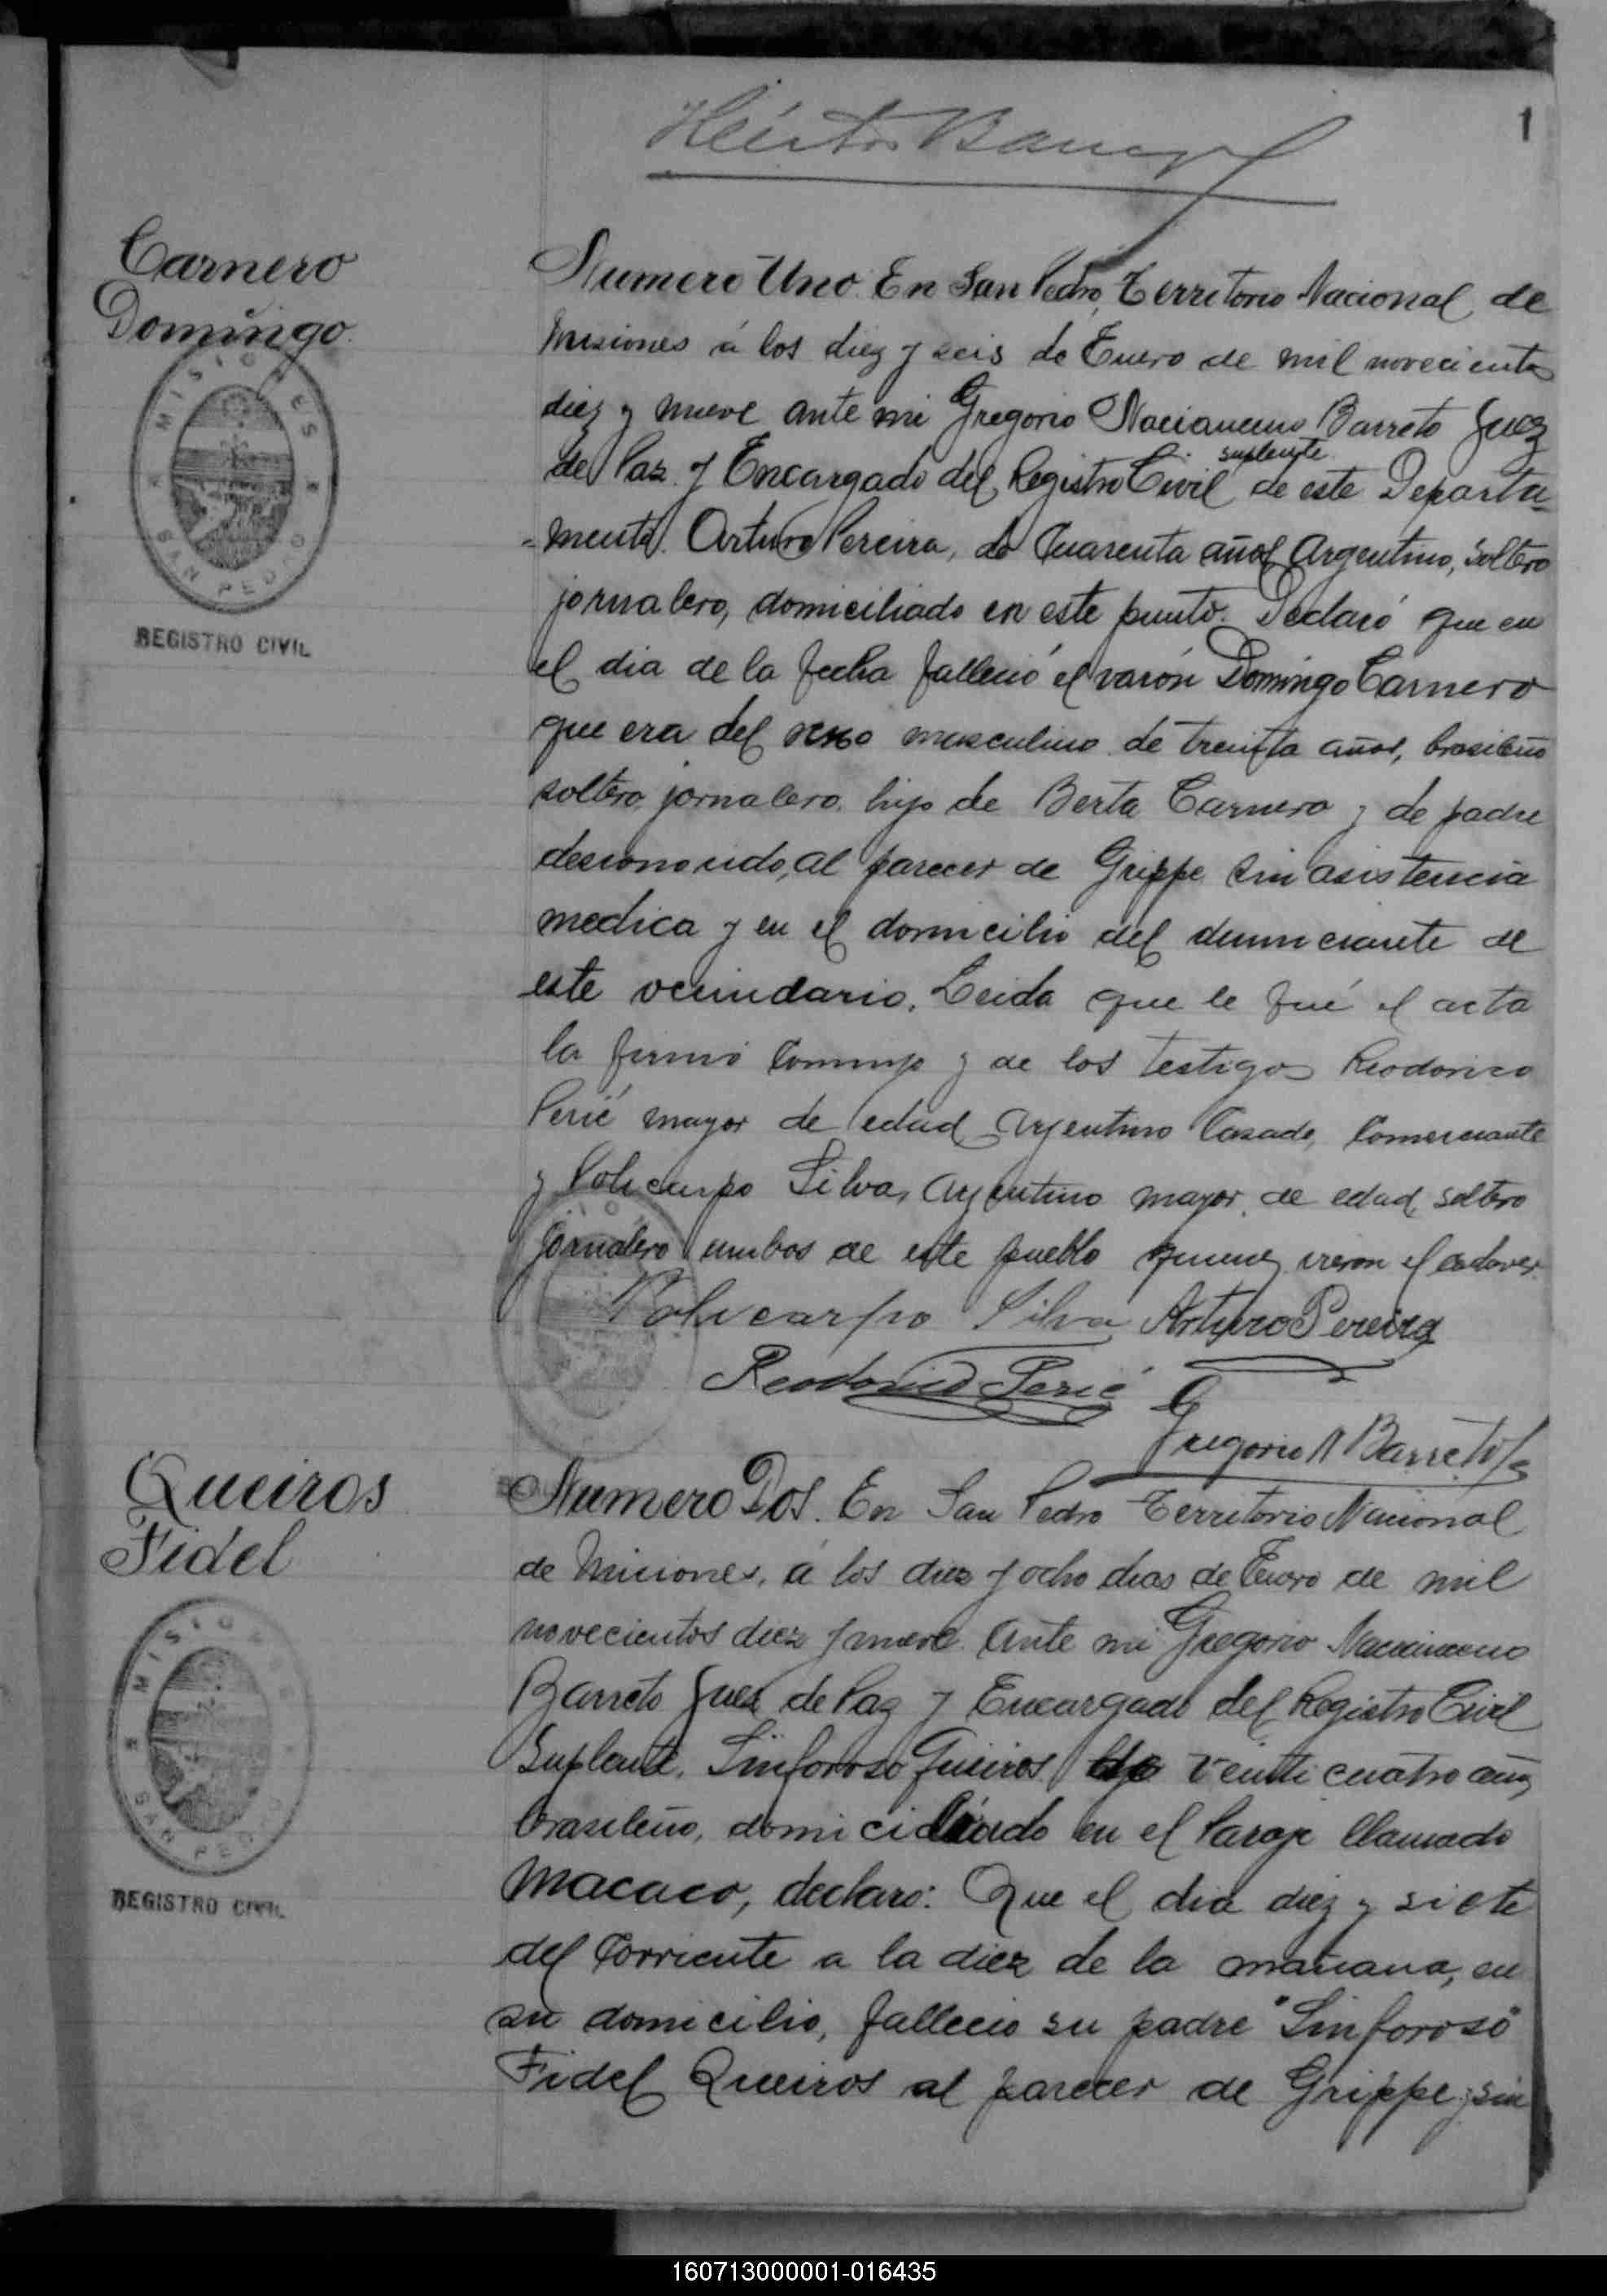 1
Carnero
Domingo
MISIONES
SAN PEDRO
REGISTRO CIVIL
Numero Uno. En San Pedro, Territorio Nacional de
Misiones á los diez y seis de Enero de mil novecientos
diez y nueve ante mi Gregorio Nacianceno Barreto Juez
suplente
de Paz y Encargado del Registro Civil de este Departa-
-mento. Arturo Pereira, de Cuarenta años Argentino, soltero
jornalero, domiciliado en este punto. Declaró que en
el dia de la fecha falleció el varón Domingo Carnero
que era del sexo masculino de treinta años, brasileño
soltero jornalero, hijo de Berta Carnero y de padre
desconocido, al parecer de Grippe sin asistencia
medica y en el domicilio del denunciante de
este vecindario. Leida que le fué el acta
la firmó conmigo y de los testigos Reodorico
Perié mayor de edad Argentino Casado, Comerciante
y Policarpo Silva, Argentino mayor de edad soltero
Jornalero ambos de este pueblo quienes vieron el cadaver
Policarpo Silva Arturo Pereira
Reodorico Perié
Gregorio N Barreto
Queiros
Fidel
MISIONES
SAN PEDRO
REGISTRO CIVIL
Numero Dos. En San Pedro Territorio Nacional
de Misiones, á los diez y ocho dias de Enero de mil
novecientos diez y nueve. Ante mi Gregorio Nacianceno
Barreto Juez de Paz y Encargado del Registro Civil
Suplente. Sinforoso Queiros, de veinti cuatro años
brasileño, domiciliado en el Paraje llamado
Macaco, declaro: Que el dia diez y siete
del Corriente a la diez de la mañana, en
su domicilio, fallecio su padre "Sinforoso"
Fidel Queiros al parecer de Grippe, sin
160713000001-016435